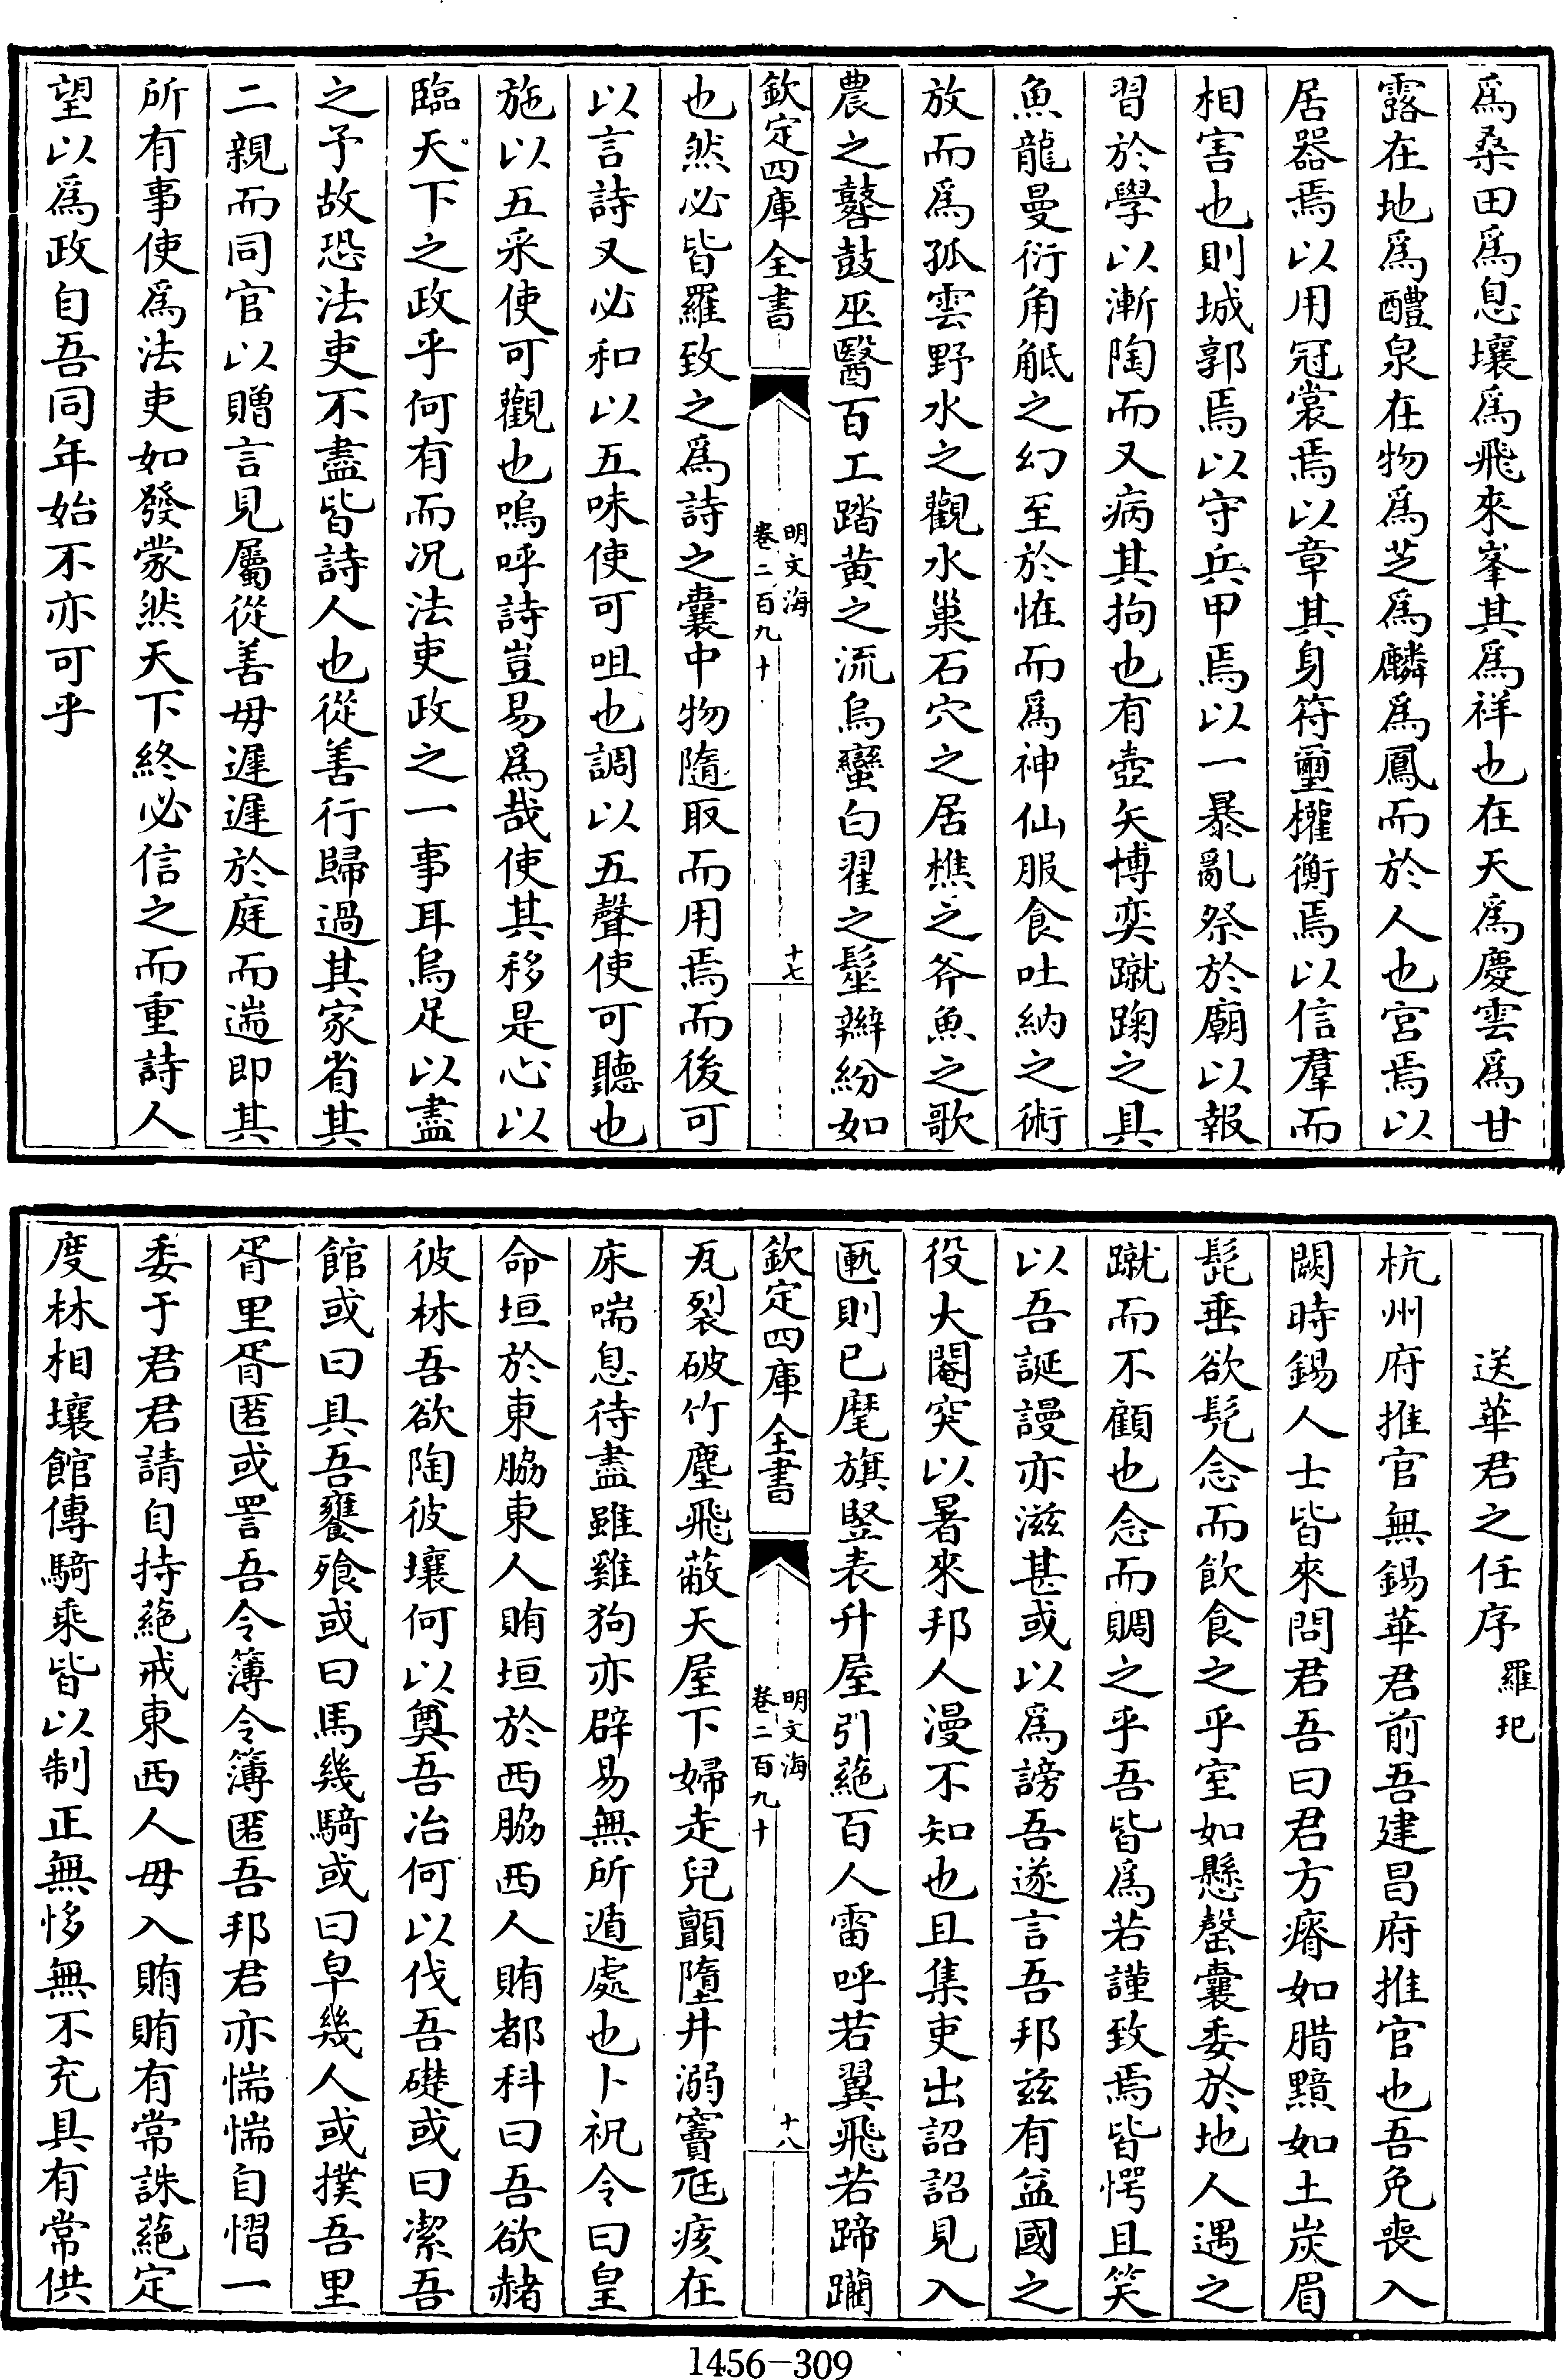 爲桑田爲息壤爲飛來峯其爲祥也在天爲慶雲爲甘
露在地爲醴泉在物爲芝爲麟爲鳳而於人也宮焉以
居器焉以用冠裳焉以章其身符璽權衡焉以信羣而
相害也則城郭焉以守兵甲焉以一暴亂祭於廟以報
習於學以漸陶而又病其拘也有壺矢博奕蹴踘之具
魚龍曼衍角觝之幻至於恠而爲神仙服食吐納之術
放而爲孤雲野水之觀水巢石穴之居樵之斧魚之歌
農之鼛鼓巫醫百工踏黄之流烏蠻白翟之髽辮紛如
欽定四庫全書
明文海
卷二百九十
十七
也然必皆羅致之爲詩之囊中物隨取而用焉而後可
以言詩又必和以五味使可咀也調以五聲使可聽也
施以五采使可觀也嗚呼詩豈易爲哉使其移是心以
臨天下之政乎何有而况法吏政之一事耳烏足以盡
之予故恐法吏不盡皆詩人也從善行歸過其家省其
二親而同官以贈言見屬從善毋遲遲於庭而遄即其
所有事使爲法吏如發蒙然天下終必信之而重詩人
望以爲政自吾同年始不亦可乎
送華君之任序 羅玘
杭州府推官無錫華君前吾建昌府推官也吾免喪入
闕時錫人士皆來問君吾曰君方瘠如腊黯如土炭眉
髭垂欲髡念而飲食之乎室如懸罄囊委於地人遇之
蹴而不顧也念而賙之乎吾皆爲若謹致焉皆愕且笑
以吾誕謾亦滋甚或以爲謗吾遂言吾邦兹有益國之
役大閹突以暑來邦人漫不知也且集吏出詔詔見入
匭則已麾旗竪表升屋引絙百人雷呼若翼飛若蹄躪
欽定四庫全書
明文海
卷二百九十
十八
瓦裂破竹塵飛蔽天屋下婦走兒顫墮井溺竇尫痎在
床喘息待盡雖雞狗亦辟易無所遁處也卜祝令曰皇
命垣於東脇東人賄垣於西脇西人賄都科曰吾欲赭
彼林吾欲陶彼壤何以奠吾冶何以伐吾礎或曰潔吾
館或曰具吾饔飱或曰馬幾騎或曰皁幾人或撲吾里
胥里胥匿或詈吾令簿令簿匿吾邦君亦惴惴自慴一
委于君君請自持絙戒東西人毋入賄賄有常誅絙定
度林相壤館傳騎乘皆以制正無恀無不充具有常供
1456-309